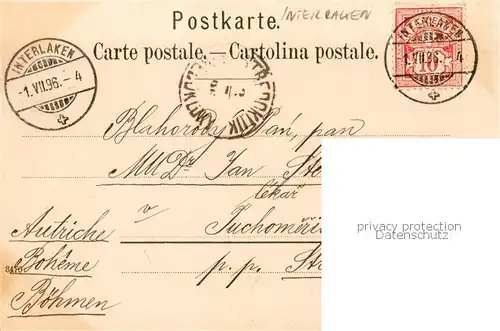 Postkarte.
INTERLAKEN
Carte postale. — Cartolina postale.
INTERLAKEN
-1.VII.96.-4
INTERLAKEN
-1.VII.96.-4
10
Blahorodý Pán, pan
MUDr Jan Ste
lékař
v Tuchoměři
Autriche
Bohême
p. p. St
Böhmen
privacy protection
Datenschutz